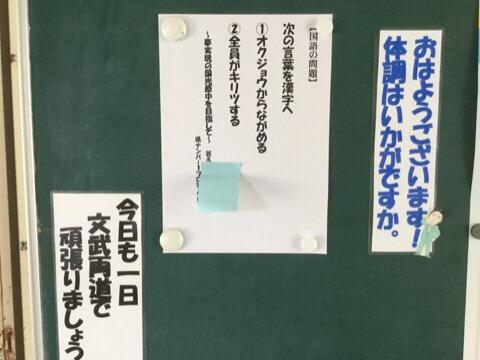 おはようございます!
体調はいかがですか。
【国語の問題】
次の言葉を漢字へ
①オクジョウからながめる
②全員がキリツする
今日も一日
文武両道で
頑張りましょう